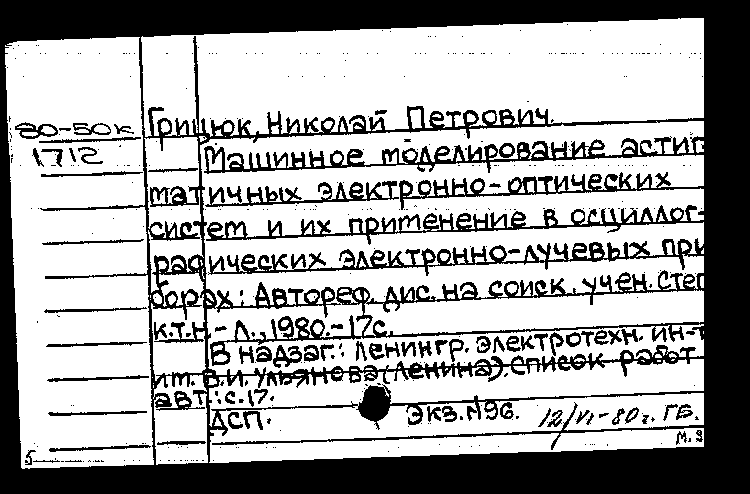 80-50к Грицюк, Николай Петрович.
1712 Машинное моделирование астиг
матичных электронно-оптических
систем и их применение в осциллог-
рафических электронно-лучевых при
борах: Автореф. дис. на соиск. учен. степ
к.т.н. - Л., 1980.- 17с.
В надзаг.: Ленингр. электротехн. ин-т
им. В.И. Ульянова (Ленина). Список работ
авт.: с.17.
ДСП. Экз. №96. 12/VI-80г. ГБ.
М. 9
5